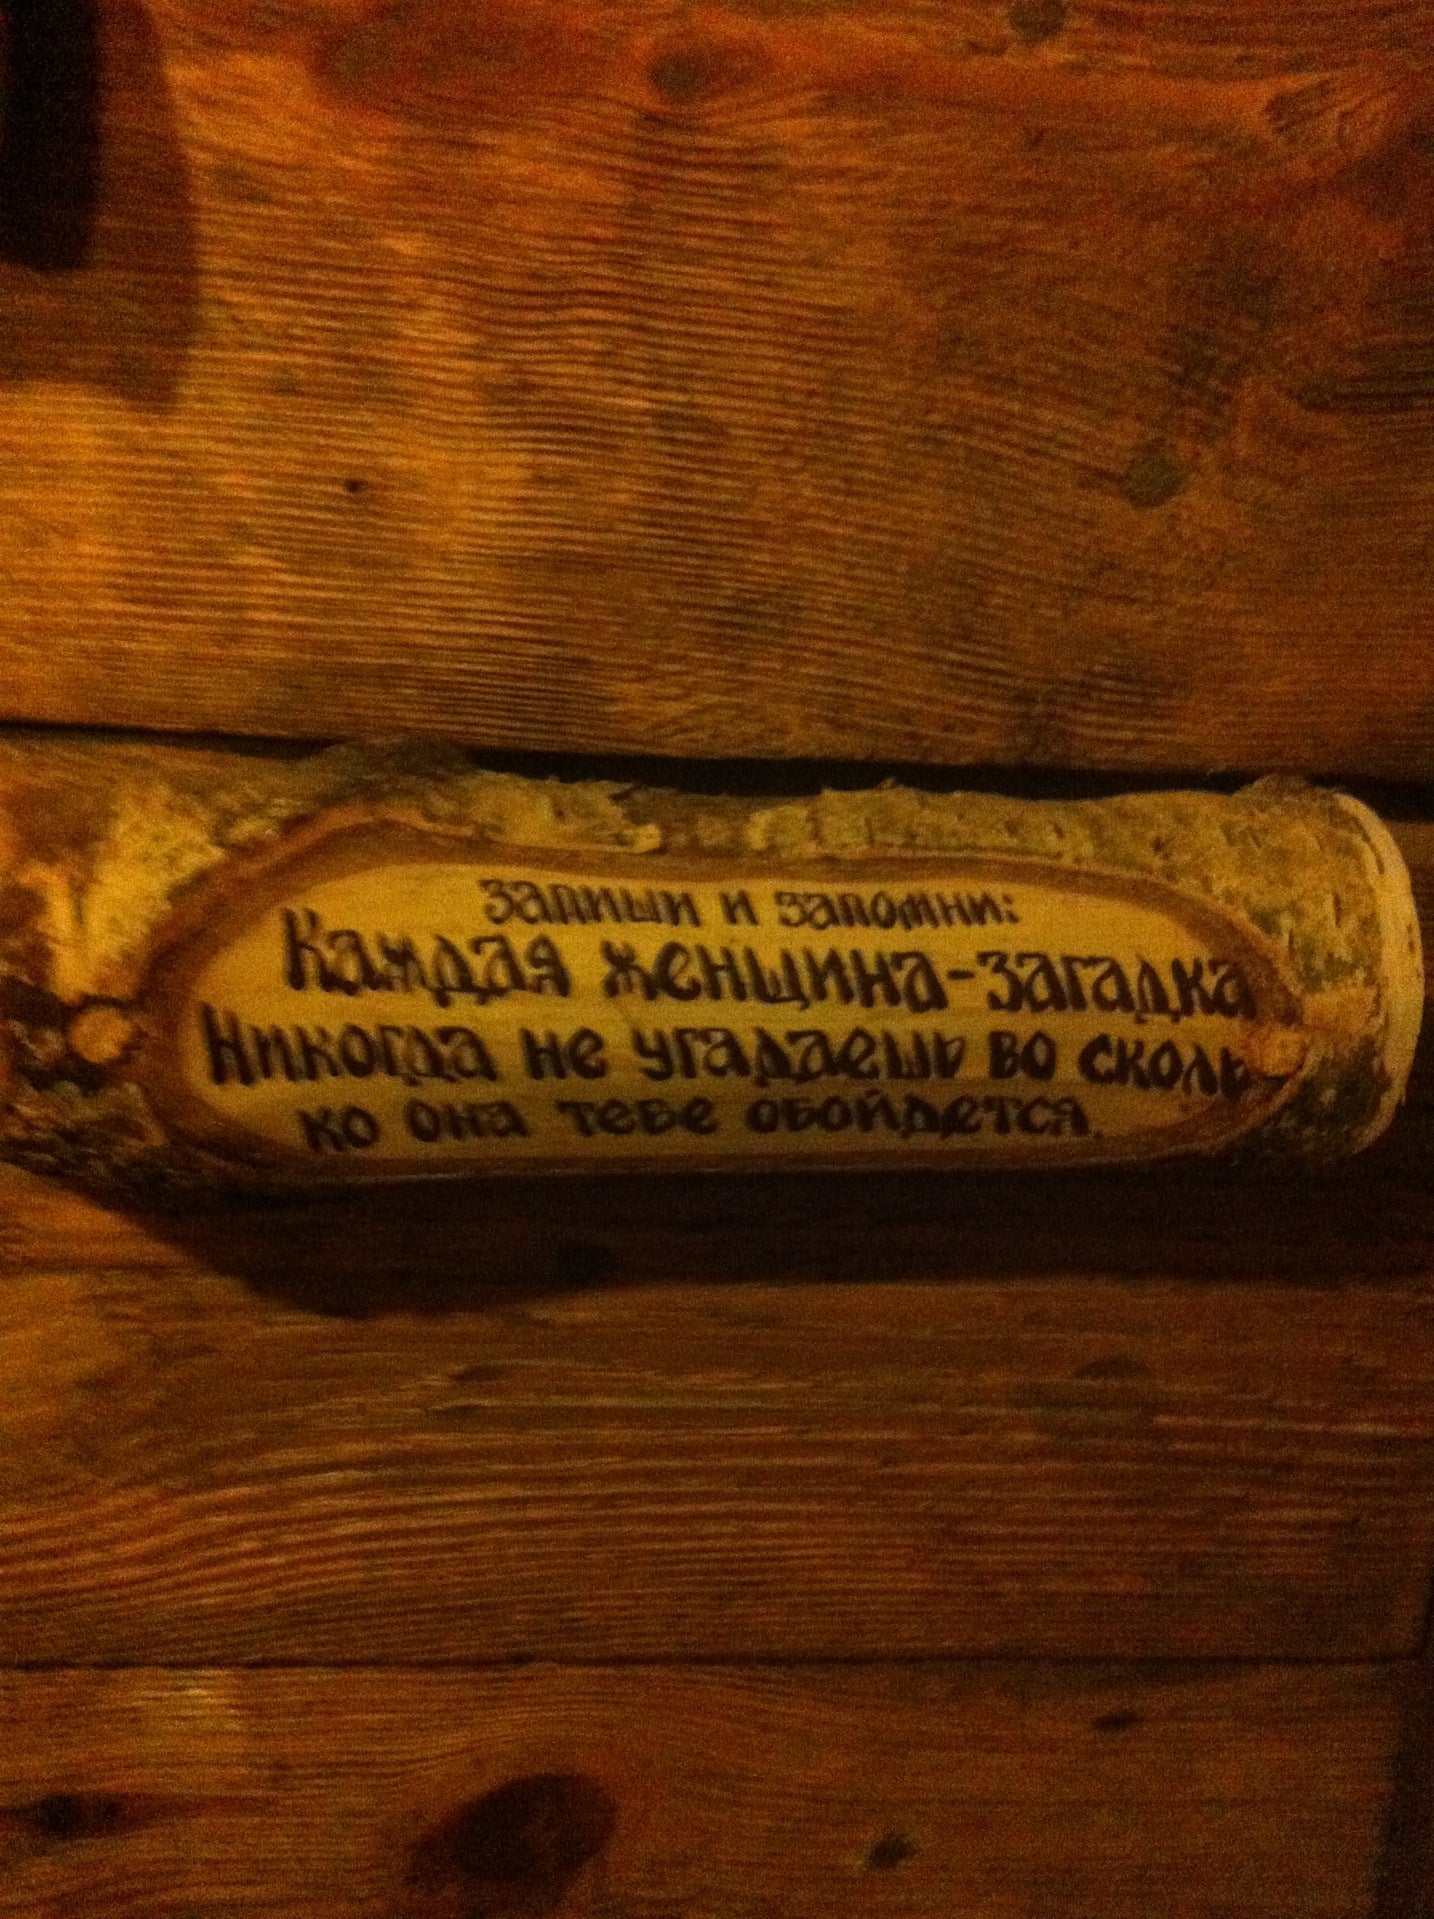 Запиши и запомни:
Каждая женщина-загадка
Никогда не угадаешь во сколь
ко она тебе обойдется.